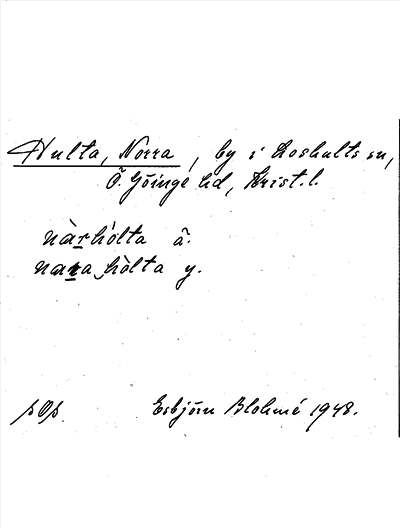 Hulta, Norra, by i Loshults sn,
Ö. Göinge hd, Krist. l.
nàrhólta ä.
nara hòlta y.
Esbjörn Blohmé 1948.